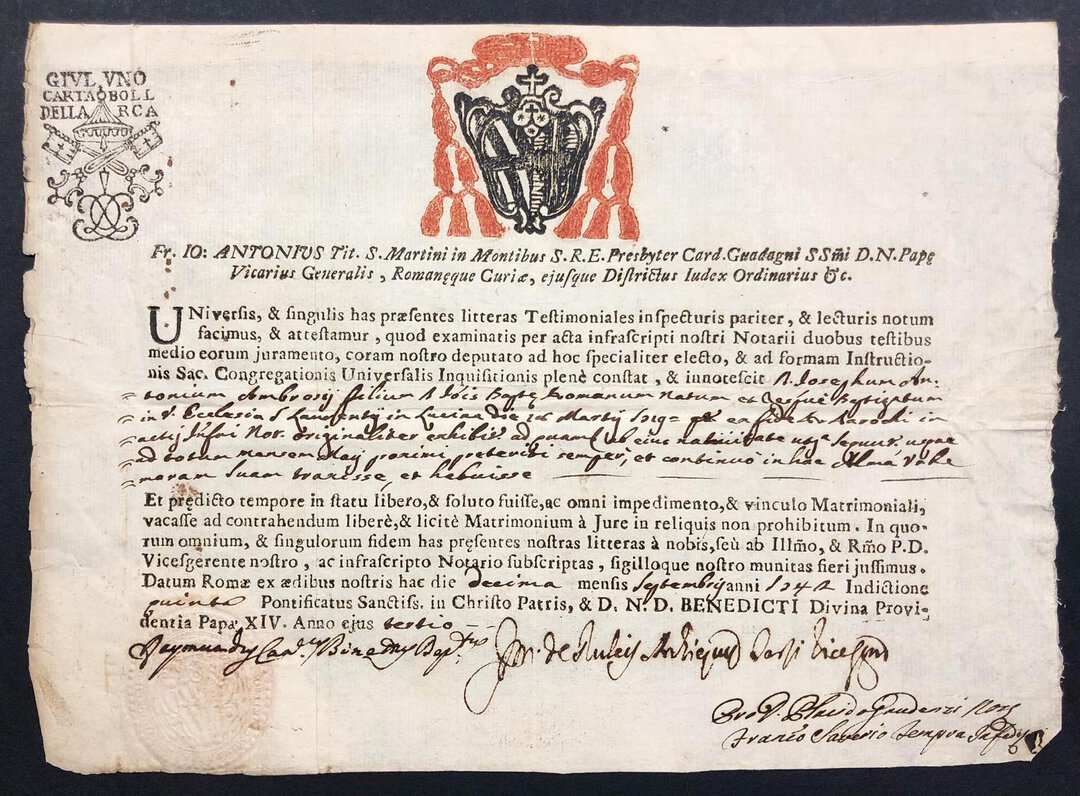 GIVL VNO
CARTA BOLL
DELLA RCA
Fr. IO: ANTONIUS Tit. S. Martini in Montibus S. R. E. Presbyter Card. Guadagni SSm̃i D. N. Papę
Vicarius Generalis, Romanęque Curiæ, ejusque Districtus Iudex Ordinarius &c.
UNiversis, & singulis has præsentes litteras Testimoniales inspecturis pariter, & lecturis notum
facimus, & attestamur, quod examinatis per acta infrascripti nostri Notarii duobus testibus
medio eorum juramento, coram nostro deputato ad hoc specialiter electo, & ad formam Instructio-
nis Sac. Congregationis Universalis Inquisitionis plenè constat, & innotescit D. Josephum An-
tonium Ambrosij filium Romanum natum et Baptizatum
in V. Ecclesia S. Laurentij in Lucina die Martij ex fide Parochi in
actis originaliter exhibit. ad quam ab eius nativitate
ad totum mensem Maij proximi preteriti semper, et continuò in hac Alma Urbe
moram suam traxisse, et habuisse
Et prędicto tempore in statu libero, & soluto fuisse, ac omni impedimento, & vinculo Matrimoniali,
vacasse ad contrahendum liberè, & licitè Matrimonium à Jure in reliquis non prohibitum. In quo-
rum omnium, & singulorum fidem has pręsentes nostras litteras à nobis, seù ab Illm̃o, & Rm̃o P. D.
Vicesgerente nostro, ac infrascripto Notario subscriptas, sigilloque nostro munitas fieri jussimus.
Datum Romæ ex ædibus nostris hac die decima mensis Septembris anni 1742 Indictione
quinta Pontificatus Sanctiss. in Christo Patris, & D. N. D. BENEDICTI Divina Provi-
dentia Papæ XIV. Anno ejus tertio
de Rubeis
Pro D. Placido Gaudenzi Not.
Franc.o Saverio